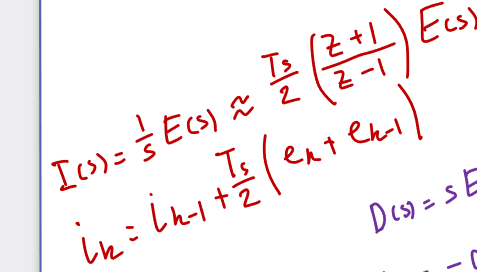 I(s) = 1/s E(s) ≈ Ts/2 (z+1 / z-1) E(s)
i_k = i_k-1 + Ts/2 (e_k + e_k-1)
D(s) = s E